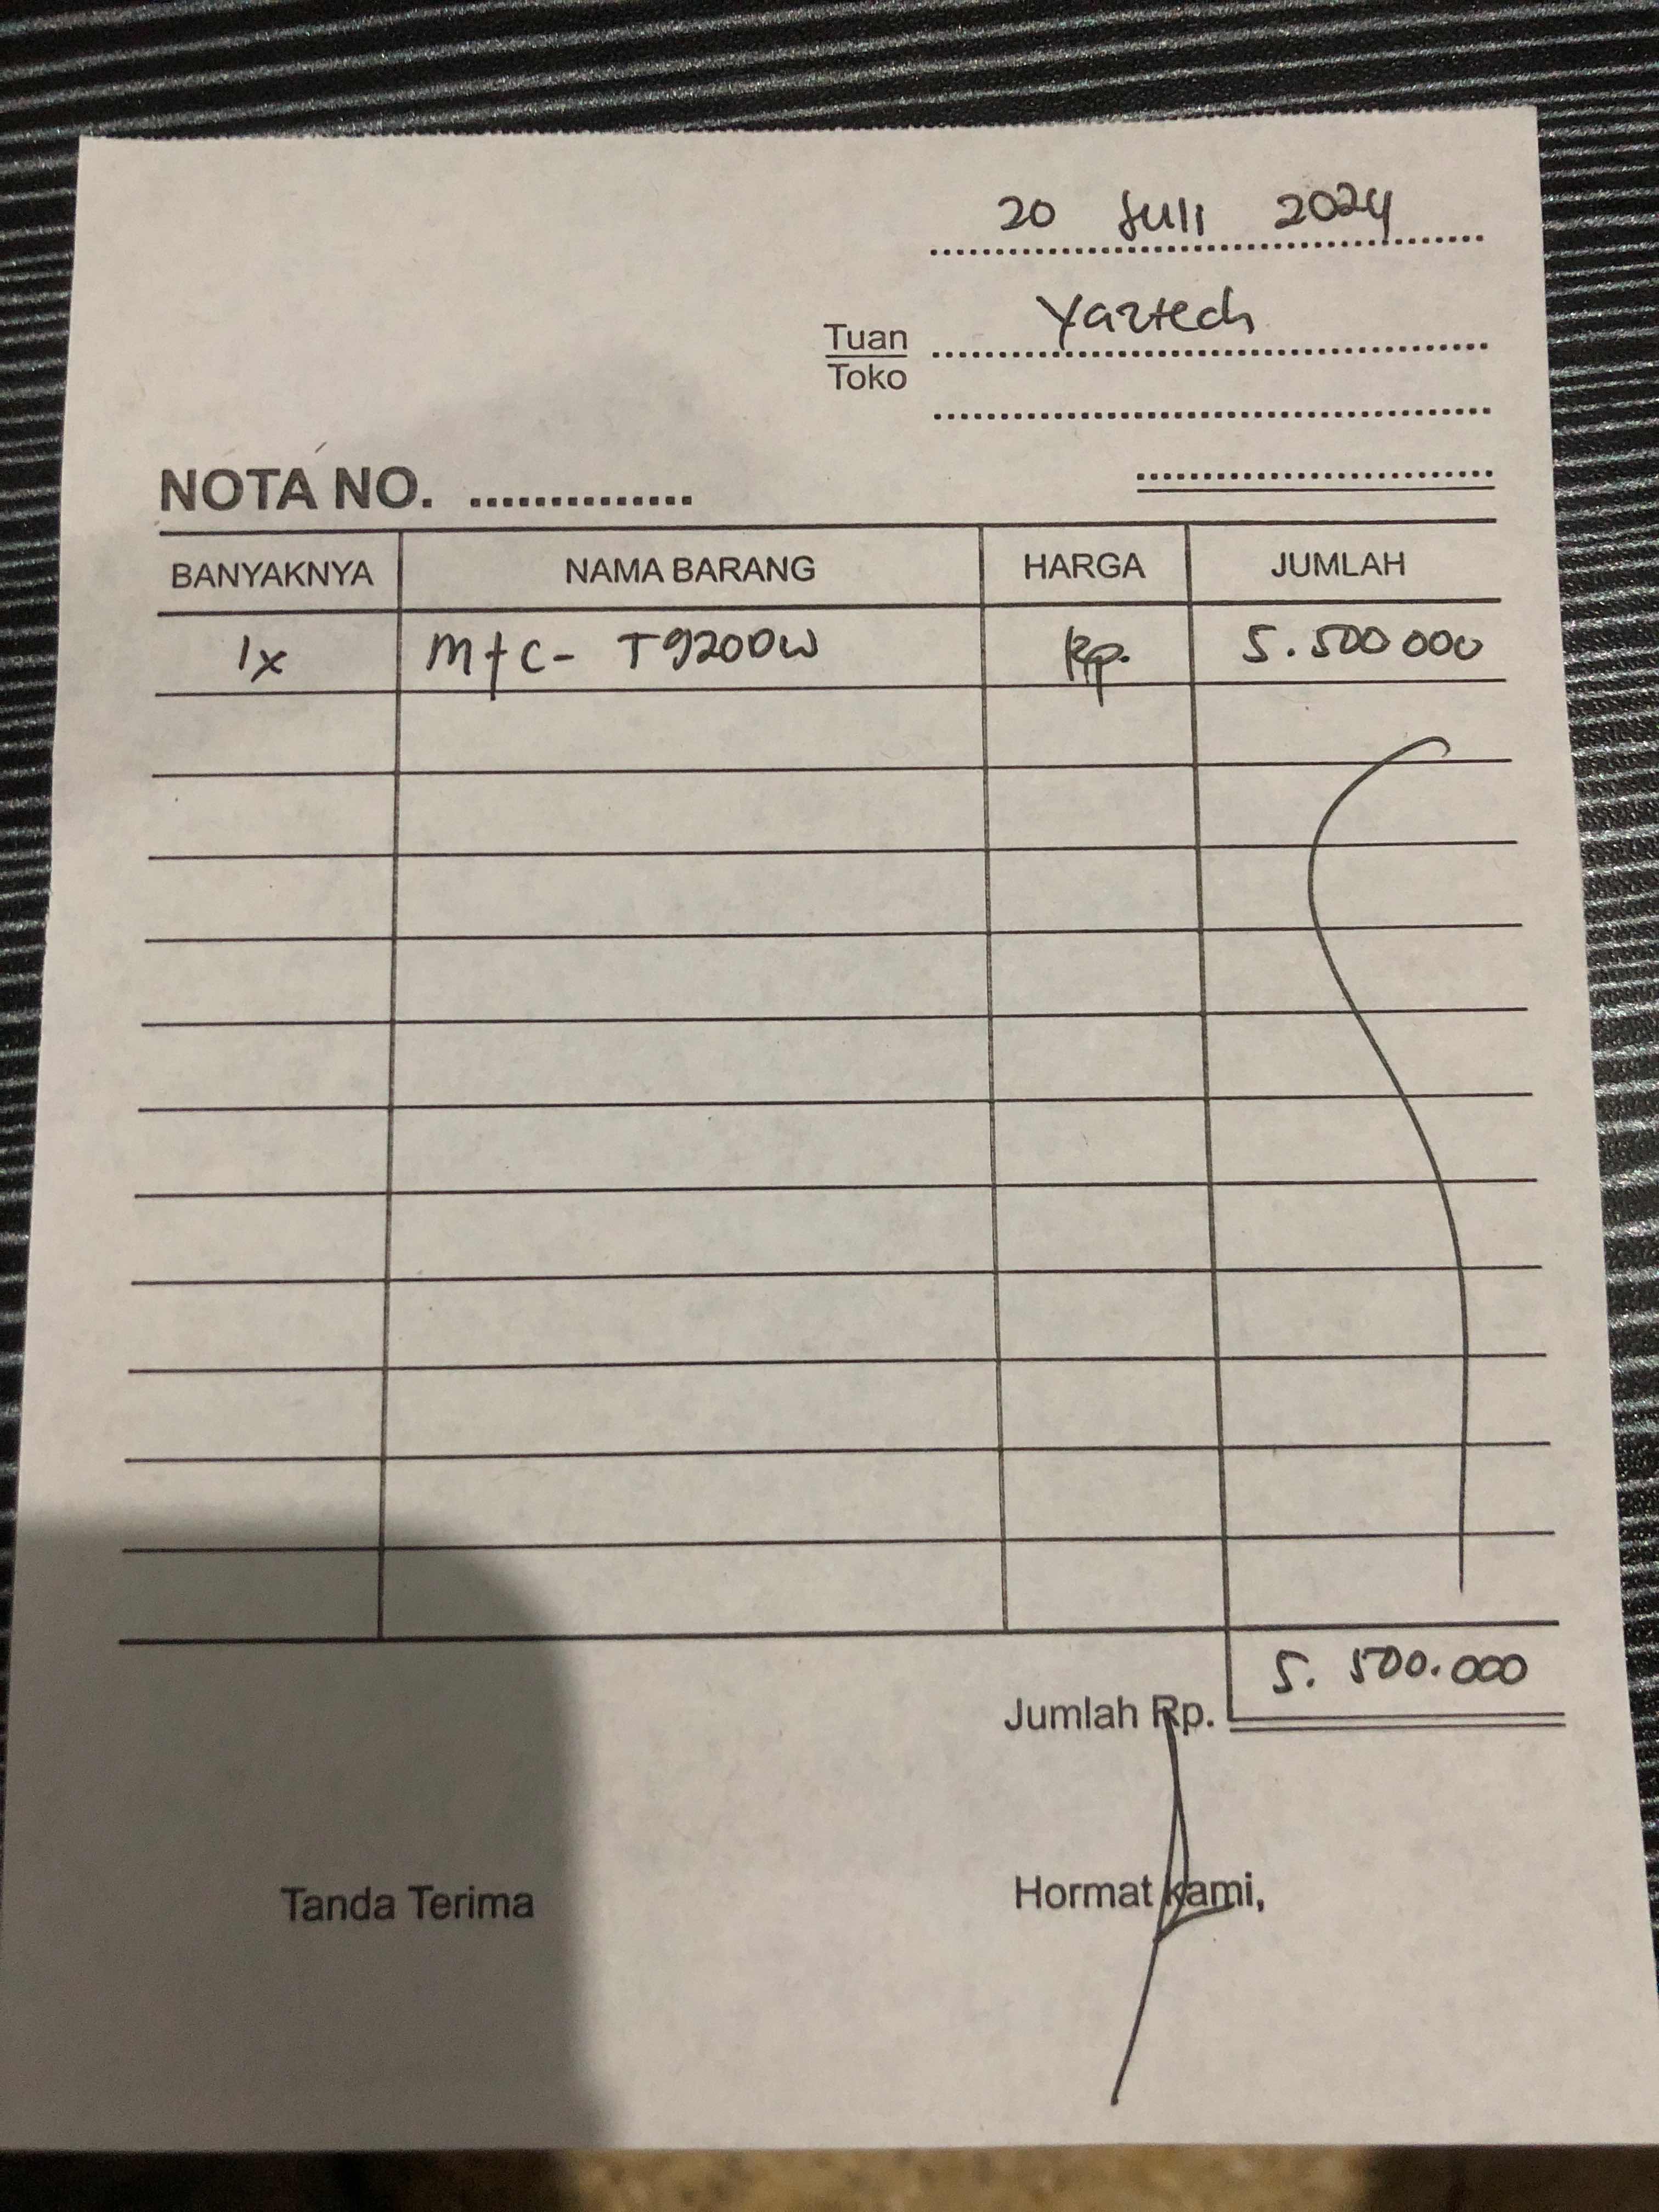 20 Juli 2024
Tuan Yaztech
Toko
NOTA NO. ..............
BANYAKNYA NAMA BARANG HARGA JUMLAH
1x Mfc- T920DW Rp. 5.500 000
Jumlah Rp. 5. 500.000
Tanda Terima Hormat kami,